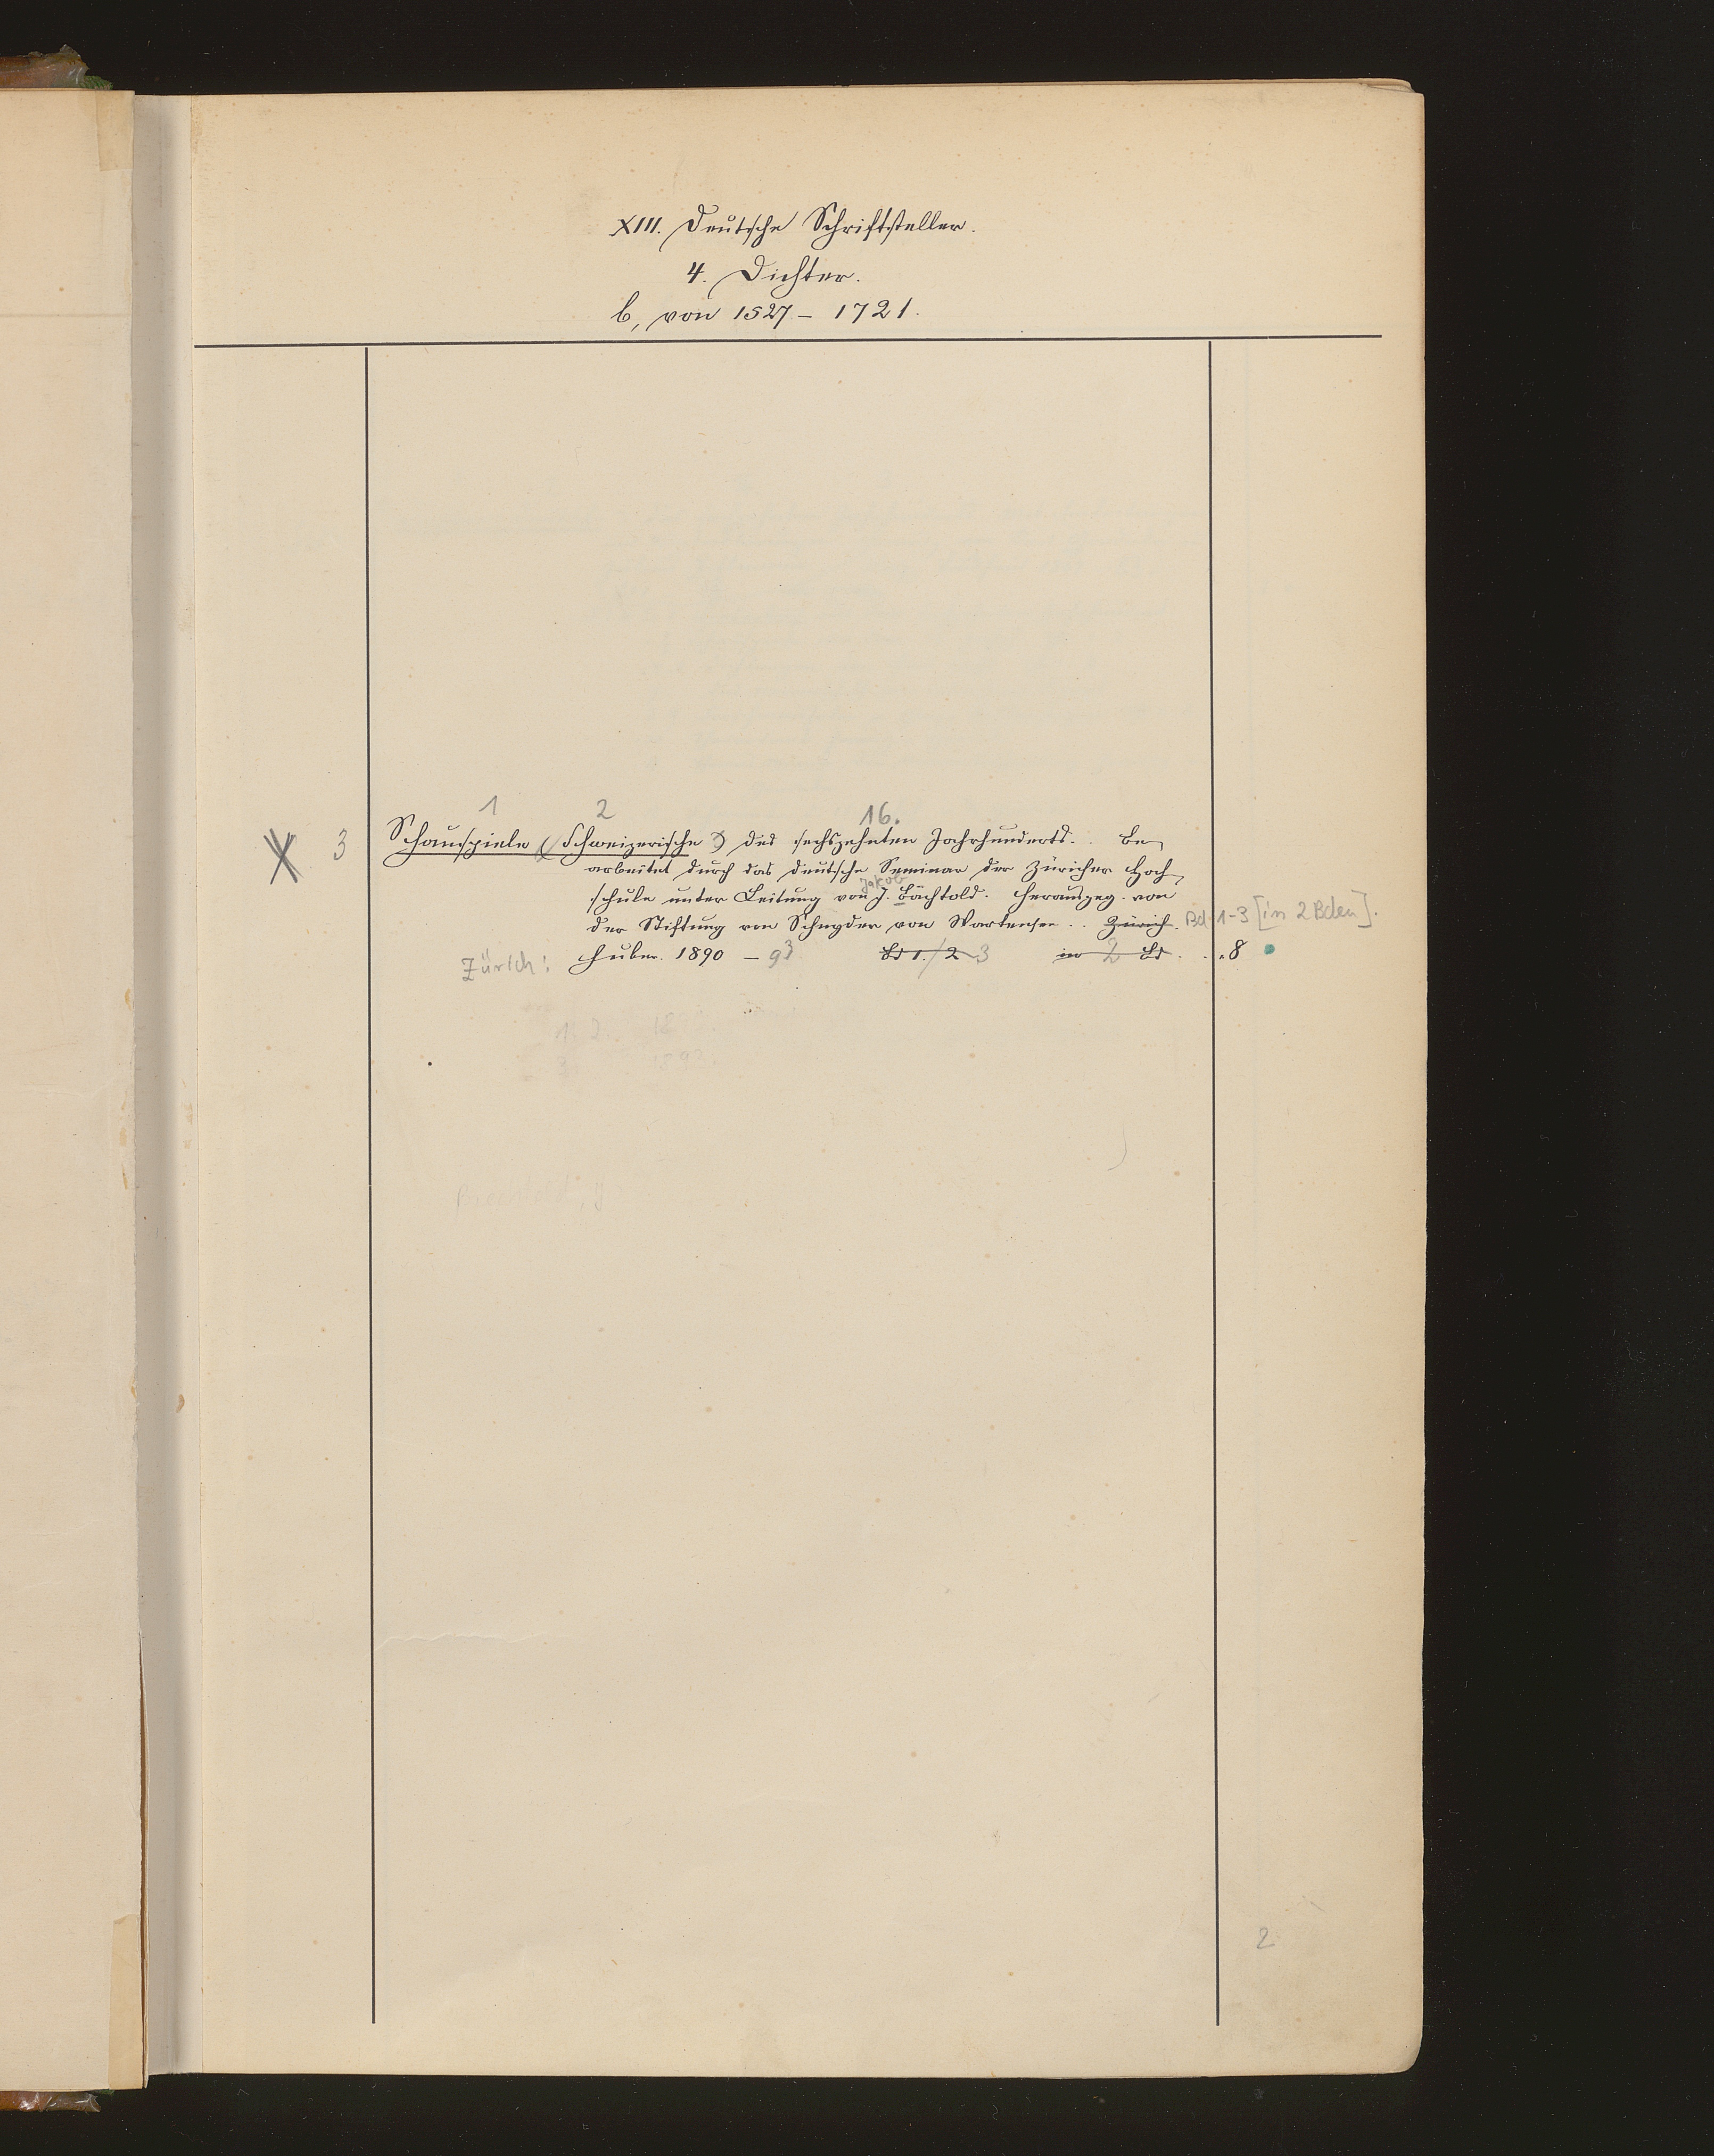 XIII. Deutsche Schriftsteller.
4. Dichter.
b, von 1527 – 1721.
1 2 16.
3 Schauspiele (Schweizerische) des sechszehnten Jahrhunderts. Be-
arbeitet durch das deutsche Seminar der Züricher Hoch-
Jakob
schule unter Leitung von J. Bächtold. Herausgeg. von
der Stiftung von Schnyder von Wartensee. Zürich. Bd 1-3 [in 2 Bden].
Zürich: Huber. 1890 – 93 Bd 1./2 3 in 2 Bd. 8
2